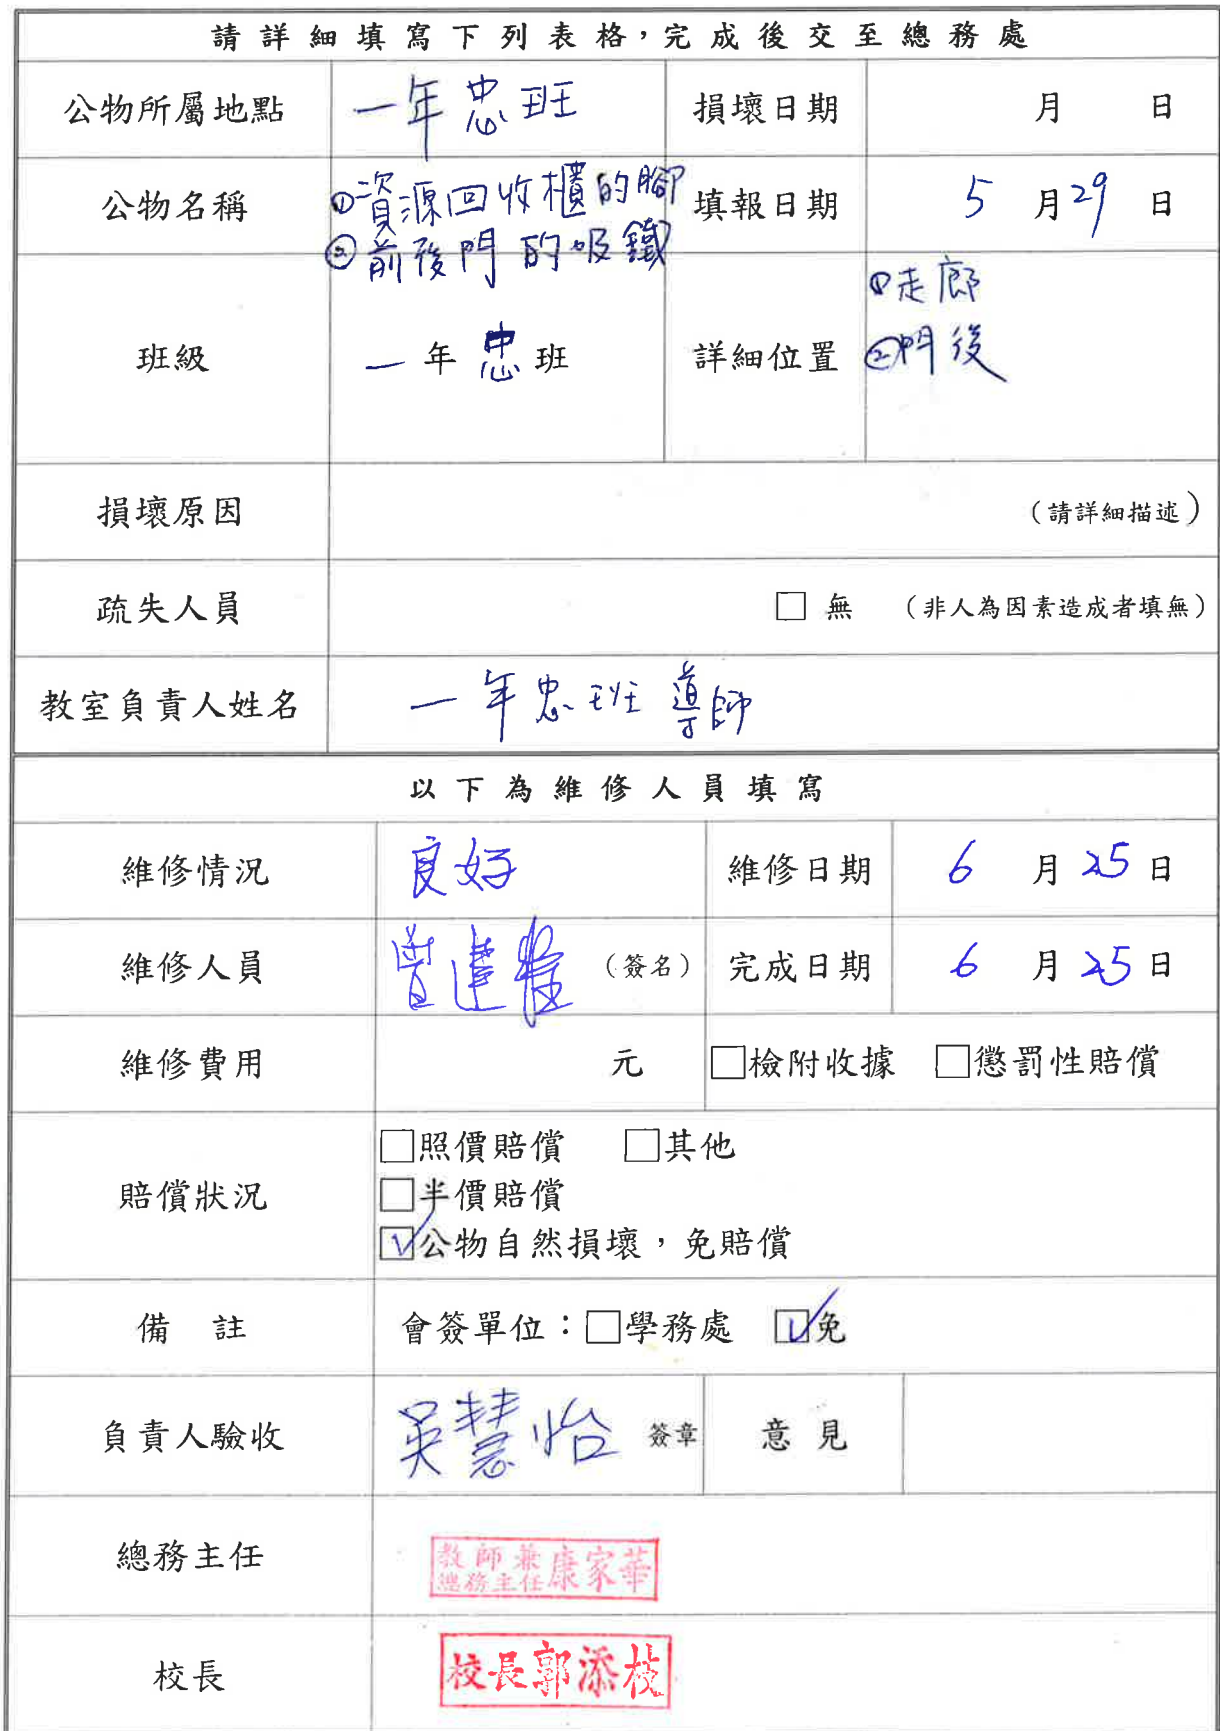 請詳細填寫下列表格，完成後交至總務處
公物所屬地點 一年忠班 損壞日期 月 日
公物名稱 ①資源回收櫃的腳 填報日期 5月29日
②前後門的吸鐵
班級 一年忠班 詳細位置 ①走廊
②門後
損壞原因 （請詳細描述）
疏失人員 □無 （非人為因素造成者填無）
教室負責人姓名 一年忠班導師
以下為維修人員填寫
維修情況 良好 維修日期 6月25日
維修人員 曾建 （簽名） 完成日期 6月25日
維修費用 元 □檢附收據 □懲罰性賠償
賠償狀況 □照價賠償 □其他
□半價賠償
☑公物自然損壞，免賠償
備註 會簽單位：□學務處 ☑免
負責人驗收 吳慧怡 簽章 意見
總務主任 教師兼總務主任康家華
校長 校長郭添枝